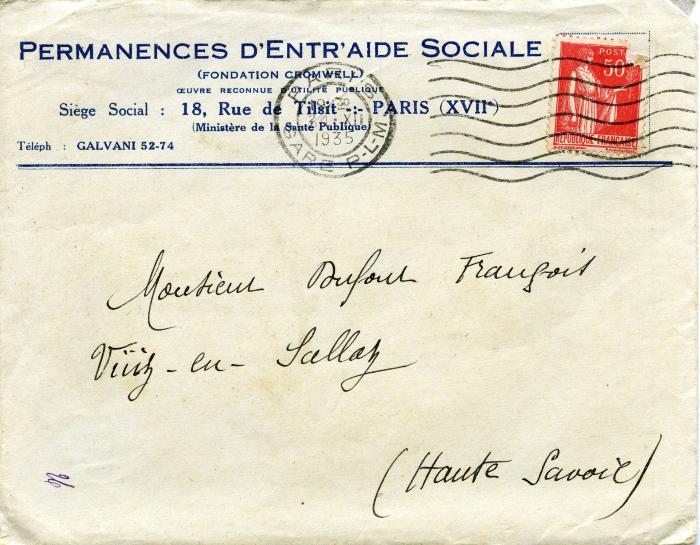 PERMANENCES D'ENTR'AIDE SOCIALE
(FONDATION CROMWELL)
ŒUVRE RECONNUE D'UTILITÉ PUBLIQUE
Siège Social : 18, Rue de Tilsit -:- PARIS (XVIIe)
(Ministère de la Santé Publique)
Téléph : GALVANI 52-74
PARIS
24 XII
1935
GARE P-L-M
POSTES
50c
REPUBLIQUE FRANÇAISE
Monsieur Dufour François
Viüz-en-Sallaz
(Haute Savoie)